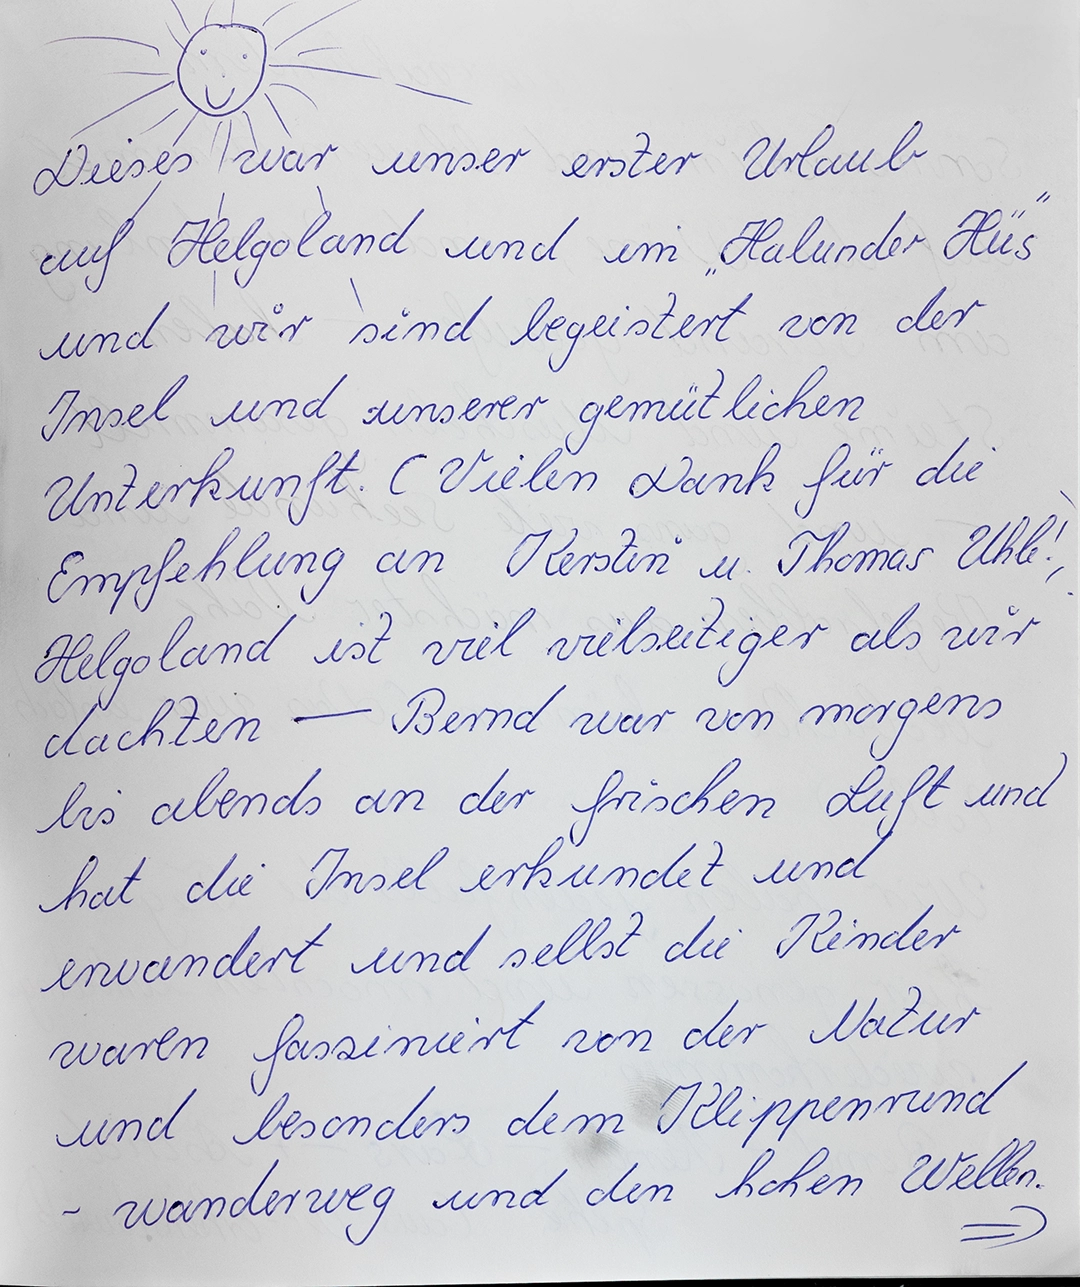 Dieses war unser erster Urlaub
auf Helgoland und im „Halunder Hüs“
und wir sind begeistert von der
Insel und unserer gemütlichen
Unterkunft. (Vielen Dank für die
Empfehlung an Kerstin u. Thomas Uhle!)
Helgoland ist viel vielseitiger als wir
dachten — Bernd war von morgens
bis abends an der frischen Luft und
hat die Insel erkundet und
erwandert und selbst die Kinder
waren fasziniert von der Natur
und besonders dem Klippenrund
- wanderweg und den hohen Wellen.
⇒